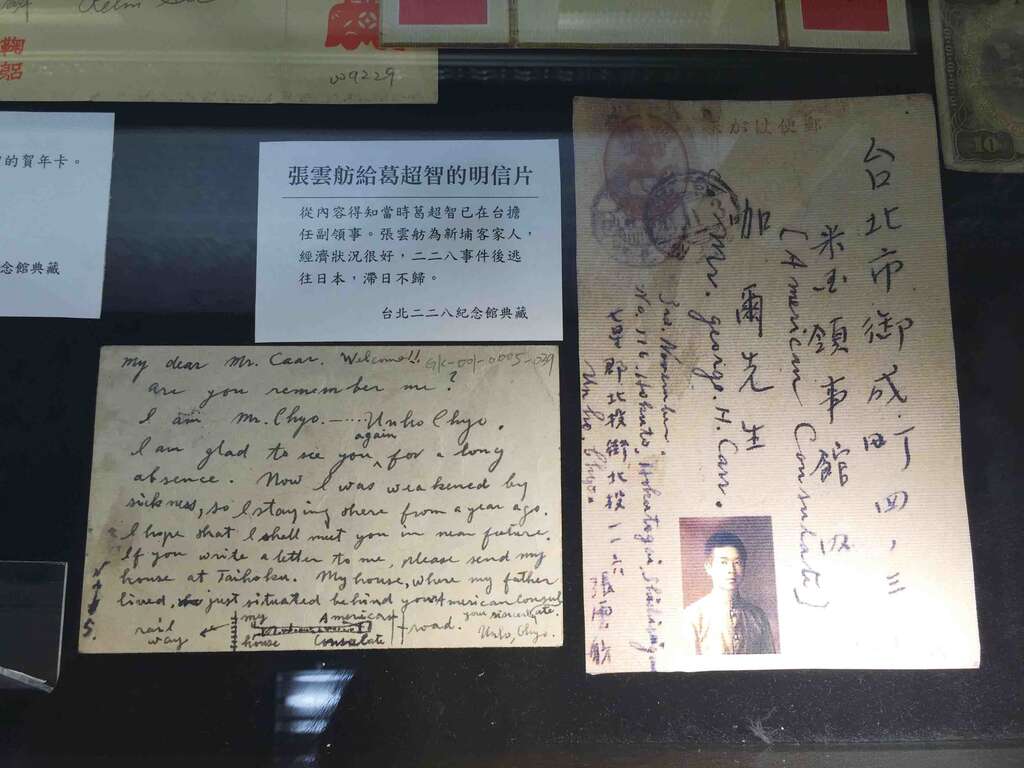 鞠
躬
W09229
10
的賀年卡。
念館典藏
張雲舫給葛超智的明信片
從內容得知當時葛超智已在台擔
任副領事。張雲舫為新埔客家人，
經濟狀況很好，二二八事件後逃
往日本，滯日不歸。
台北二二八紀念館典藏
My dear Mr. Caar. Welcome!! GK-001-0005-039
are you remember me?
I am Mr. Chyo-----Unho Chyo.
I am glad to see you again for a long
absence. Now I was weakened by
sickness, so I staying there from a year ago.
I hope that I shall meet you in near future.
If you write a letter to me, please send my
house at Taihoku. My house, where my father
lived, just situated behind your American Consulate.
your sincerely
Unho, Chyo.
rail way
my house
American Consulate
road.
N
S.
郵便はがき
台北市御成町四ノ三
米国領事館内
(American Consulate)
咖爾先生
Mr. george. H. Carr.
3rd, November
No, 116. Hokuto, Hokutogai,
北投街北投一一六
張雲舫
Unho, Chyo.